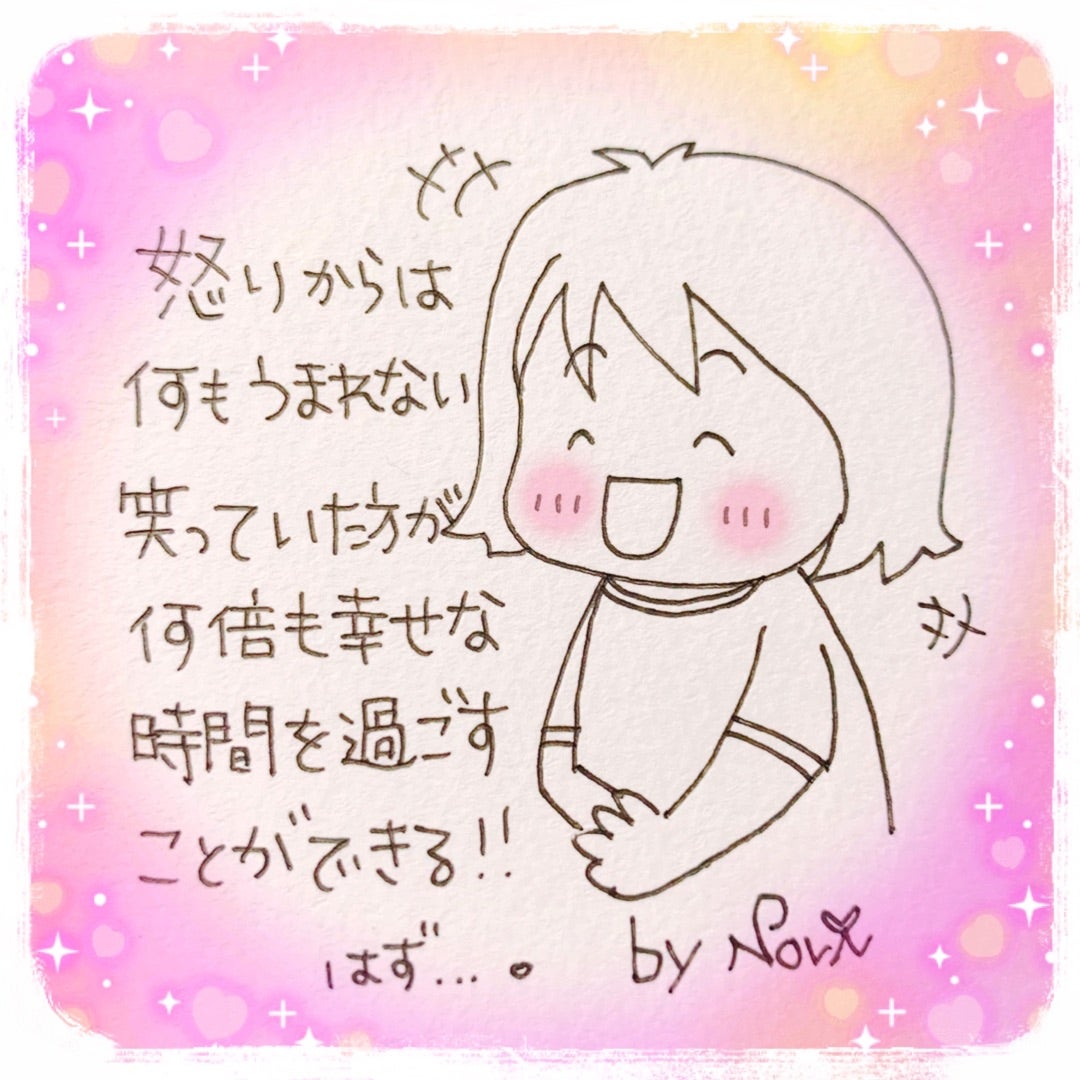 怒りからは
何もうまれない
笑っていた方が
何倍も幸せな
時間を過ごす
ことができる!!
はず…。
by Nori